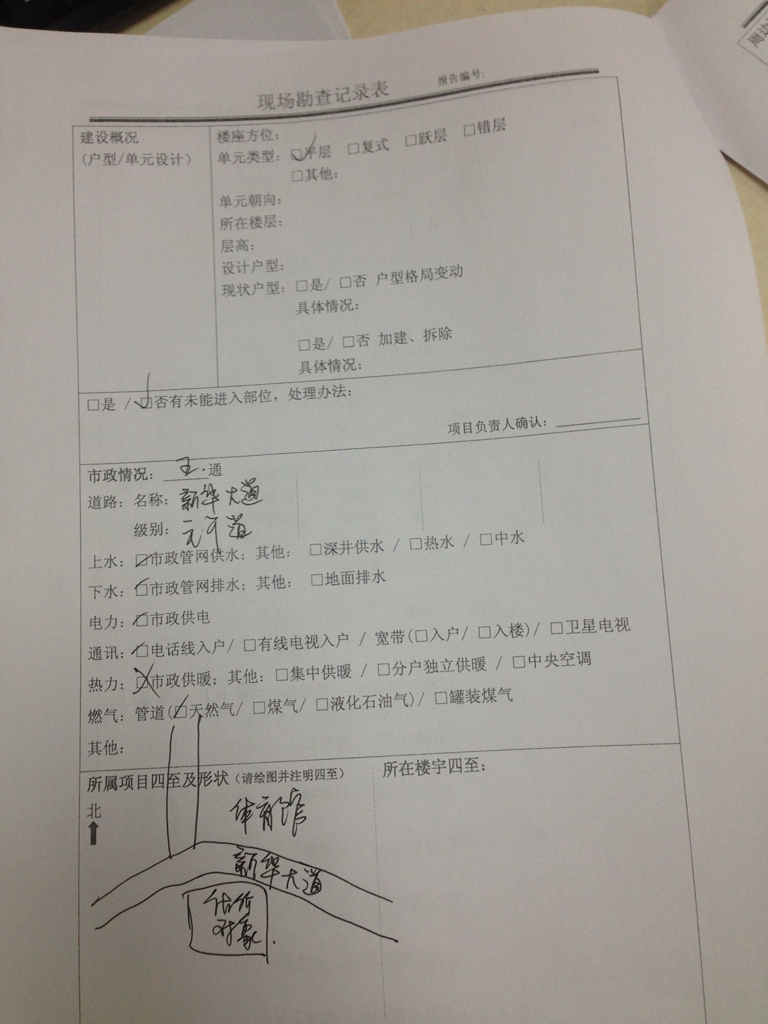 现场勘查记录表
报告编号:
建设概况
(户型/单元设计)
楼座方位:
单元类型: ☑平层 □复式 □跃层 □错层
□其他:
单元朝向:
所在楼层:
层高:
设计户型:
现状户型: □是/ □否 户型格局变动
具体情况:
□是/ □否 加建、拆除
具体情况:
□是 / ☑否有未能进入部位, 处理办法:
项目负责人确认:
市政情况: 五.通
道路: 名称: 新华大道
级别:
上水: ☑市政管网供水; 其他: □深井供水 / □热水 / □中水
下水: ☑市政管网排水; 其他: □地面排水
电力: ☑市政供电
通讯: ☑电话线入户/ □有线电视入户 / 宽带(□入户/ □入楼)/ □卫星电视
热力: ☒市政供暖; 其他: □集中供暖 / □分户独立供暖 / □中央空调
燃气: 管道(☑天然气/ □煤气/ □液化石油气)/ □罐装煤气
其他:
所属项目四至及形状 (请绘图并注明四至)
所在楼宇四至:
北
体育馆
新华大道
估价
对象